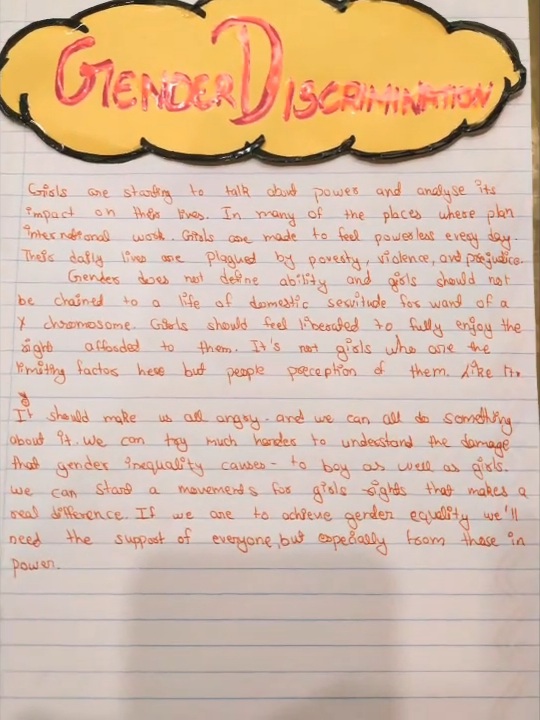 GENDER DISCRIMINATION
Girls are starting to talk about power and analyse its
impact on their lives. In many of the places where plan
international work. Girls are made to feel powerless every day.
Their daily lives are plagued by poverty, violence, and prejudice.
Gender does not define ability and girls should not
be chained to a life of domestic servitude for want of a
Y chromosome. Girls should feel liberated to fully enjoy the
right afforded to them. It's not girls who are the
limiting factors here but people preception of them. Like
It should make us all angry. and we can all do something
about it. We can try much harder to understand the damage
that gender inequality causes - to boy as well as girls.
we can start a movements for girls rights that makes a
real difference. If we are to achieve gender equality we'll
need the support of everyone, but especially from those in
power.